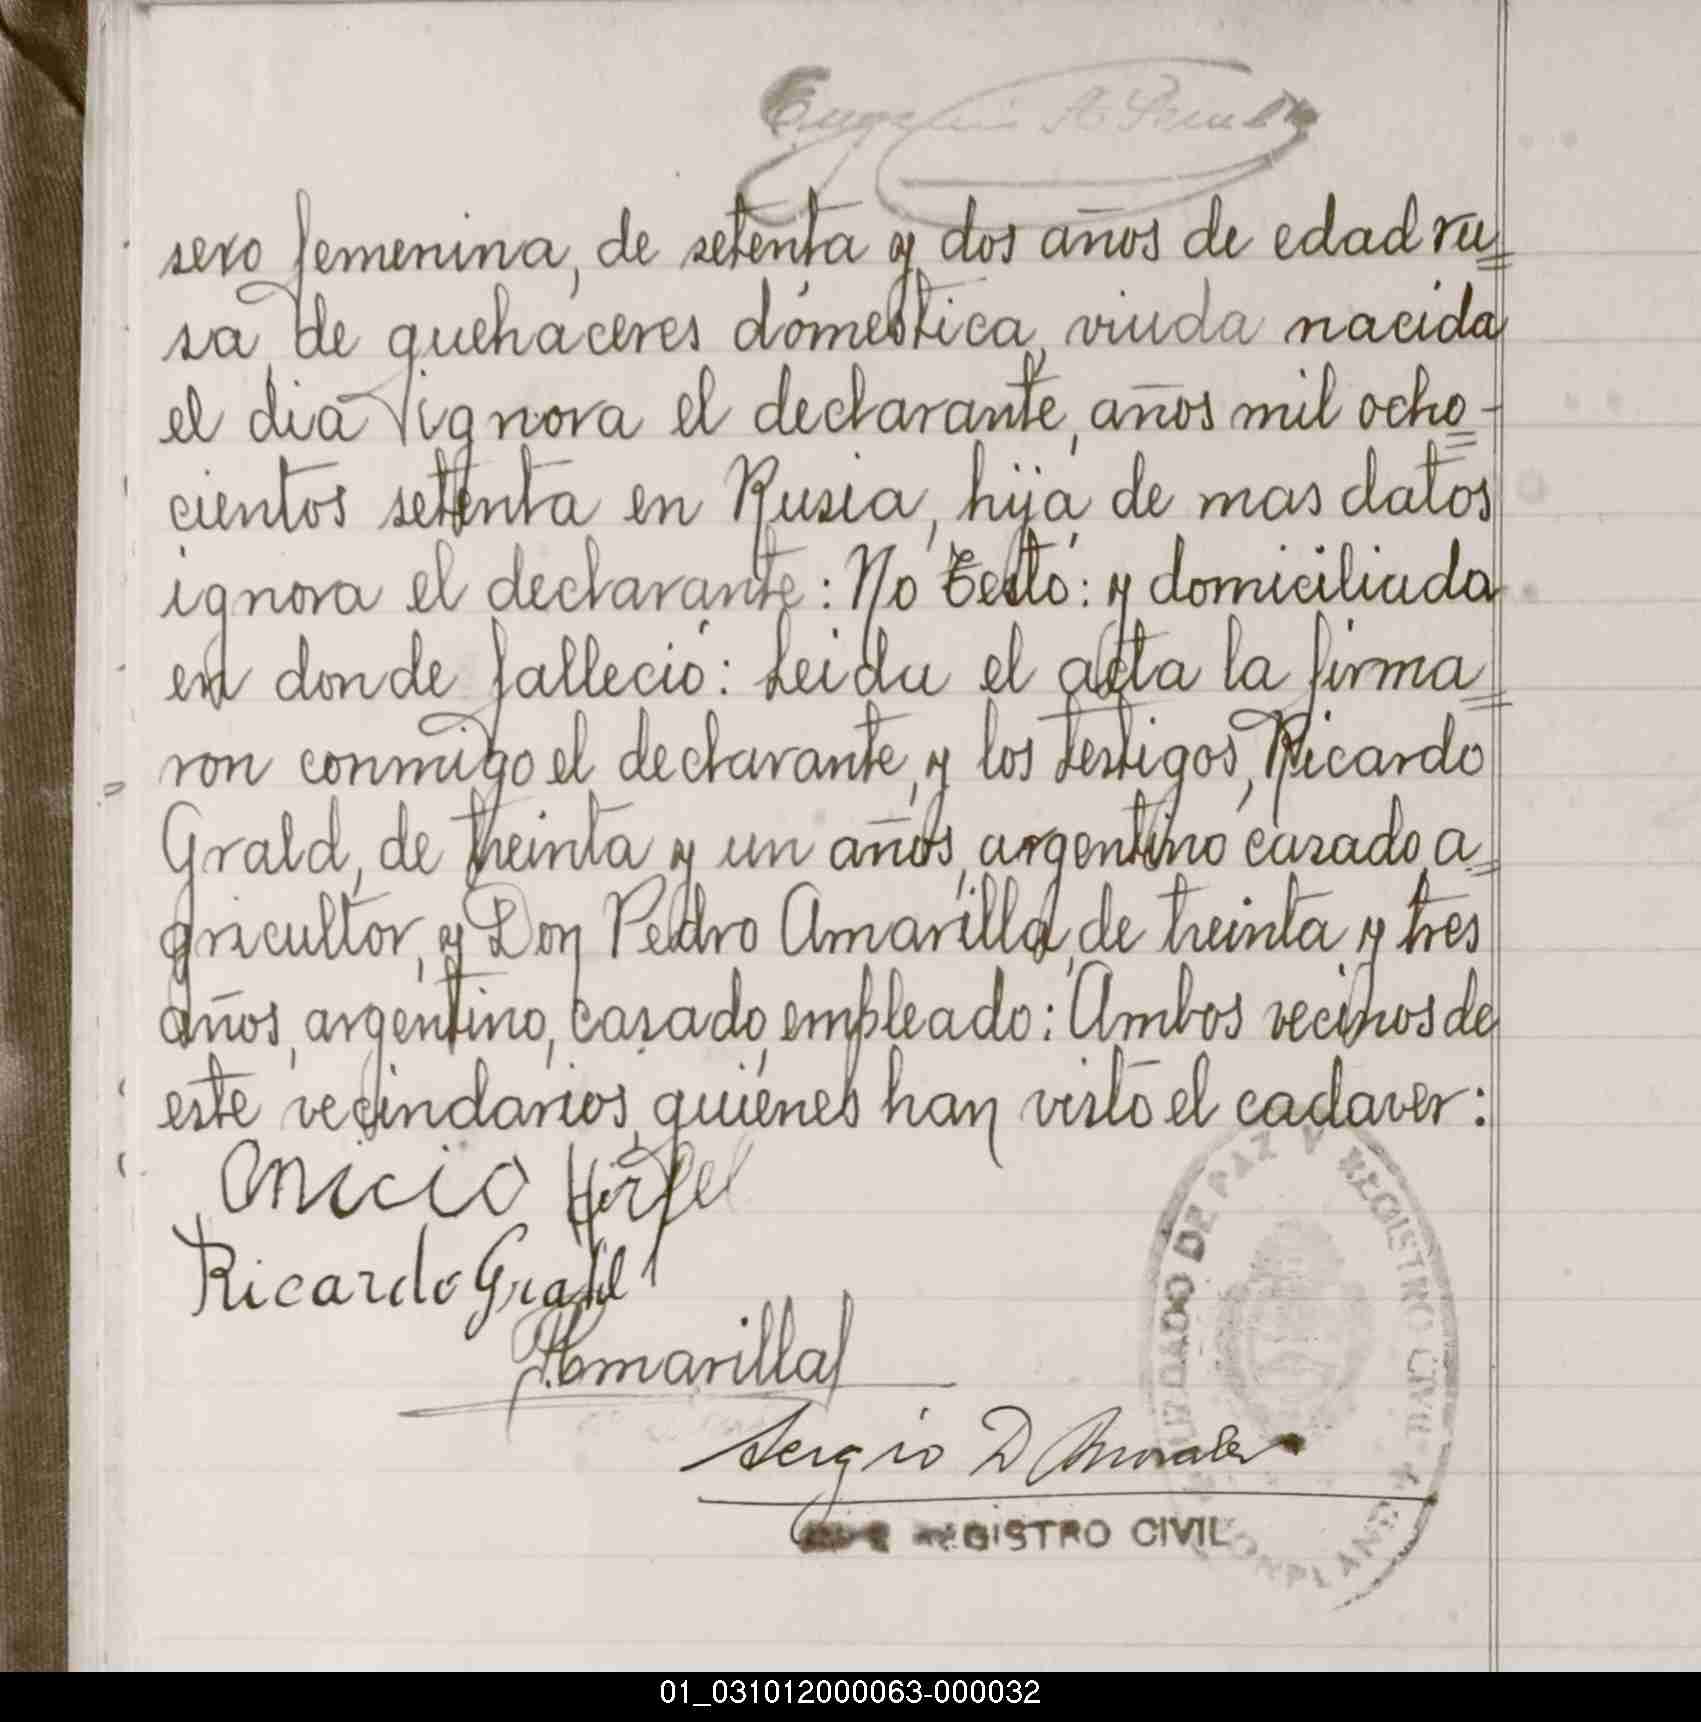 sexo femenina, de setenta y dos años de edad ru=
sa, de quehaceres doméstica, viuda nacida
el dia ignora el declarante, años mil ocho-
cientos setenta en Rusia, hija de mas datos
ignora el declarante: No Testó: y domiciliada
en donde falleció: Leidu el acta la firma=
ron conmigo el declarante, y los testigos, Ricardo
Grald, de treinta y un años, argentino casado, a=
gricultor, y Don Pedro Amarilla, de treinta y tres
años, argentino, casado, empleado: Ambos vecinos de
este vecindarios, quiénes han visto el cadaver:
Ricardo
Amarilla
Sergio D Morales
REGISTRO CIVIL
JUZGADO DE PAZ Y REGISTRO CIVIL
01_031012000063-000032